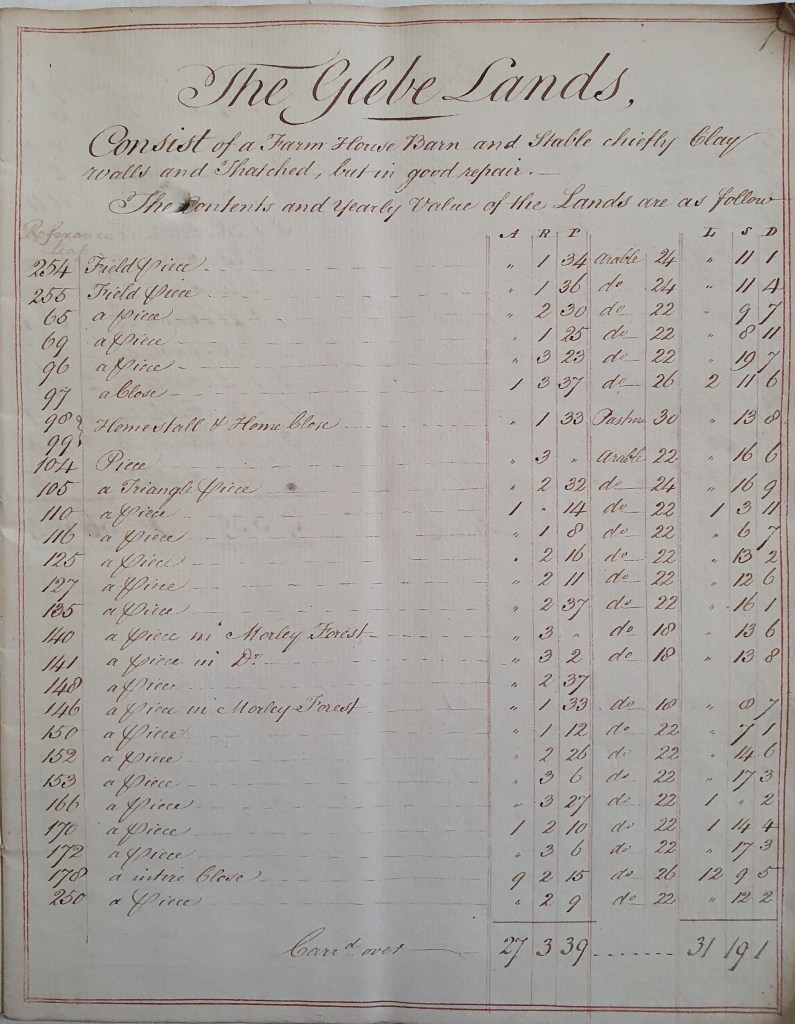 The Glebe Lands,
Consist of a Farm House Barn and Stable chiefly Clay
walls and Thatched, but in good repair. —
The Contents and Yearly Value of the Lands are as follow
Reference A R P L S D
Map
254 Field Piece " 1 34 Arable 24 " 11 1
255 Field Piece " 1 36 do 24 " 11 4
65 a Piece " 2 30 do 22 " 9 7
69 a Piece " 1 25 do 22 " 8 11
96 a Piece " 3 23 do 22 " 19 7
97 a Close 1 3 37 do 26 2 11 6
98 } Homestall & Home Close " 1 33 Pasture 30 " 13 8
99 }
104 Piece " 3 " Arable 22 " 16 6
105 a Triangle Piece " 2 32 do 24 " 16 9
110 a Piece 1 " 14 do 22 1 3 11
116 a Piece " 1 8 do 22 " 6 7
125 a Piece " 2 16 do 22 " 13 2
127 a Piece " 2 11 do 22 " 12 6
135 a Piece " 2 37 do 22 " 16 1
140 a Piece in Morley Forest " 3 " do 18 " 13 6
141 a Piece in Do. " 3 2 do 18 " 13 8
148 a Piece " 2 37
146 a Piece in Morley Forest " 1 33 do 18 " 8 7
150 a Piece " 1 12 do 22 " 7 1
152 a Piece " 2 26 do 22 " 14 6
153 a Piece " 3 6 do 22 " 17 3
166 a Piece " 3 27 do 22 1 " 2
170 a Piece 1 2 10 do 22 1 14 4
172 a Piece " 3 6 do 22 " 17 3
178 a intire Close 9 2 15 do 26 12 9 5
250 a Piece " 2 9 do 22 " 12 2
Carrd over 27 3 39 31 19 1